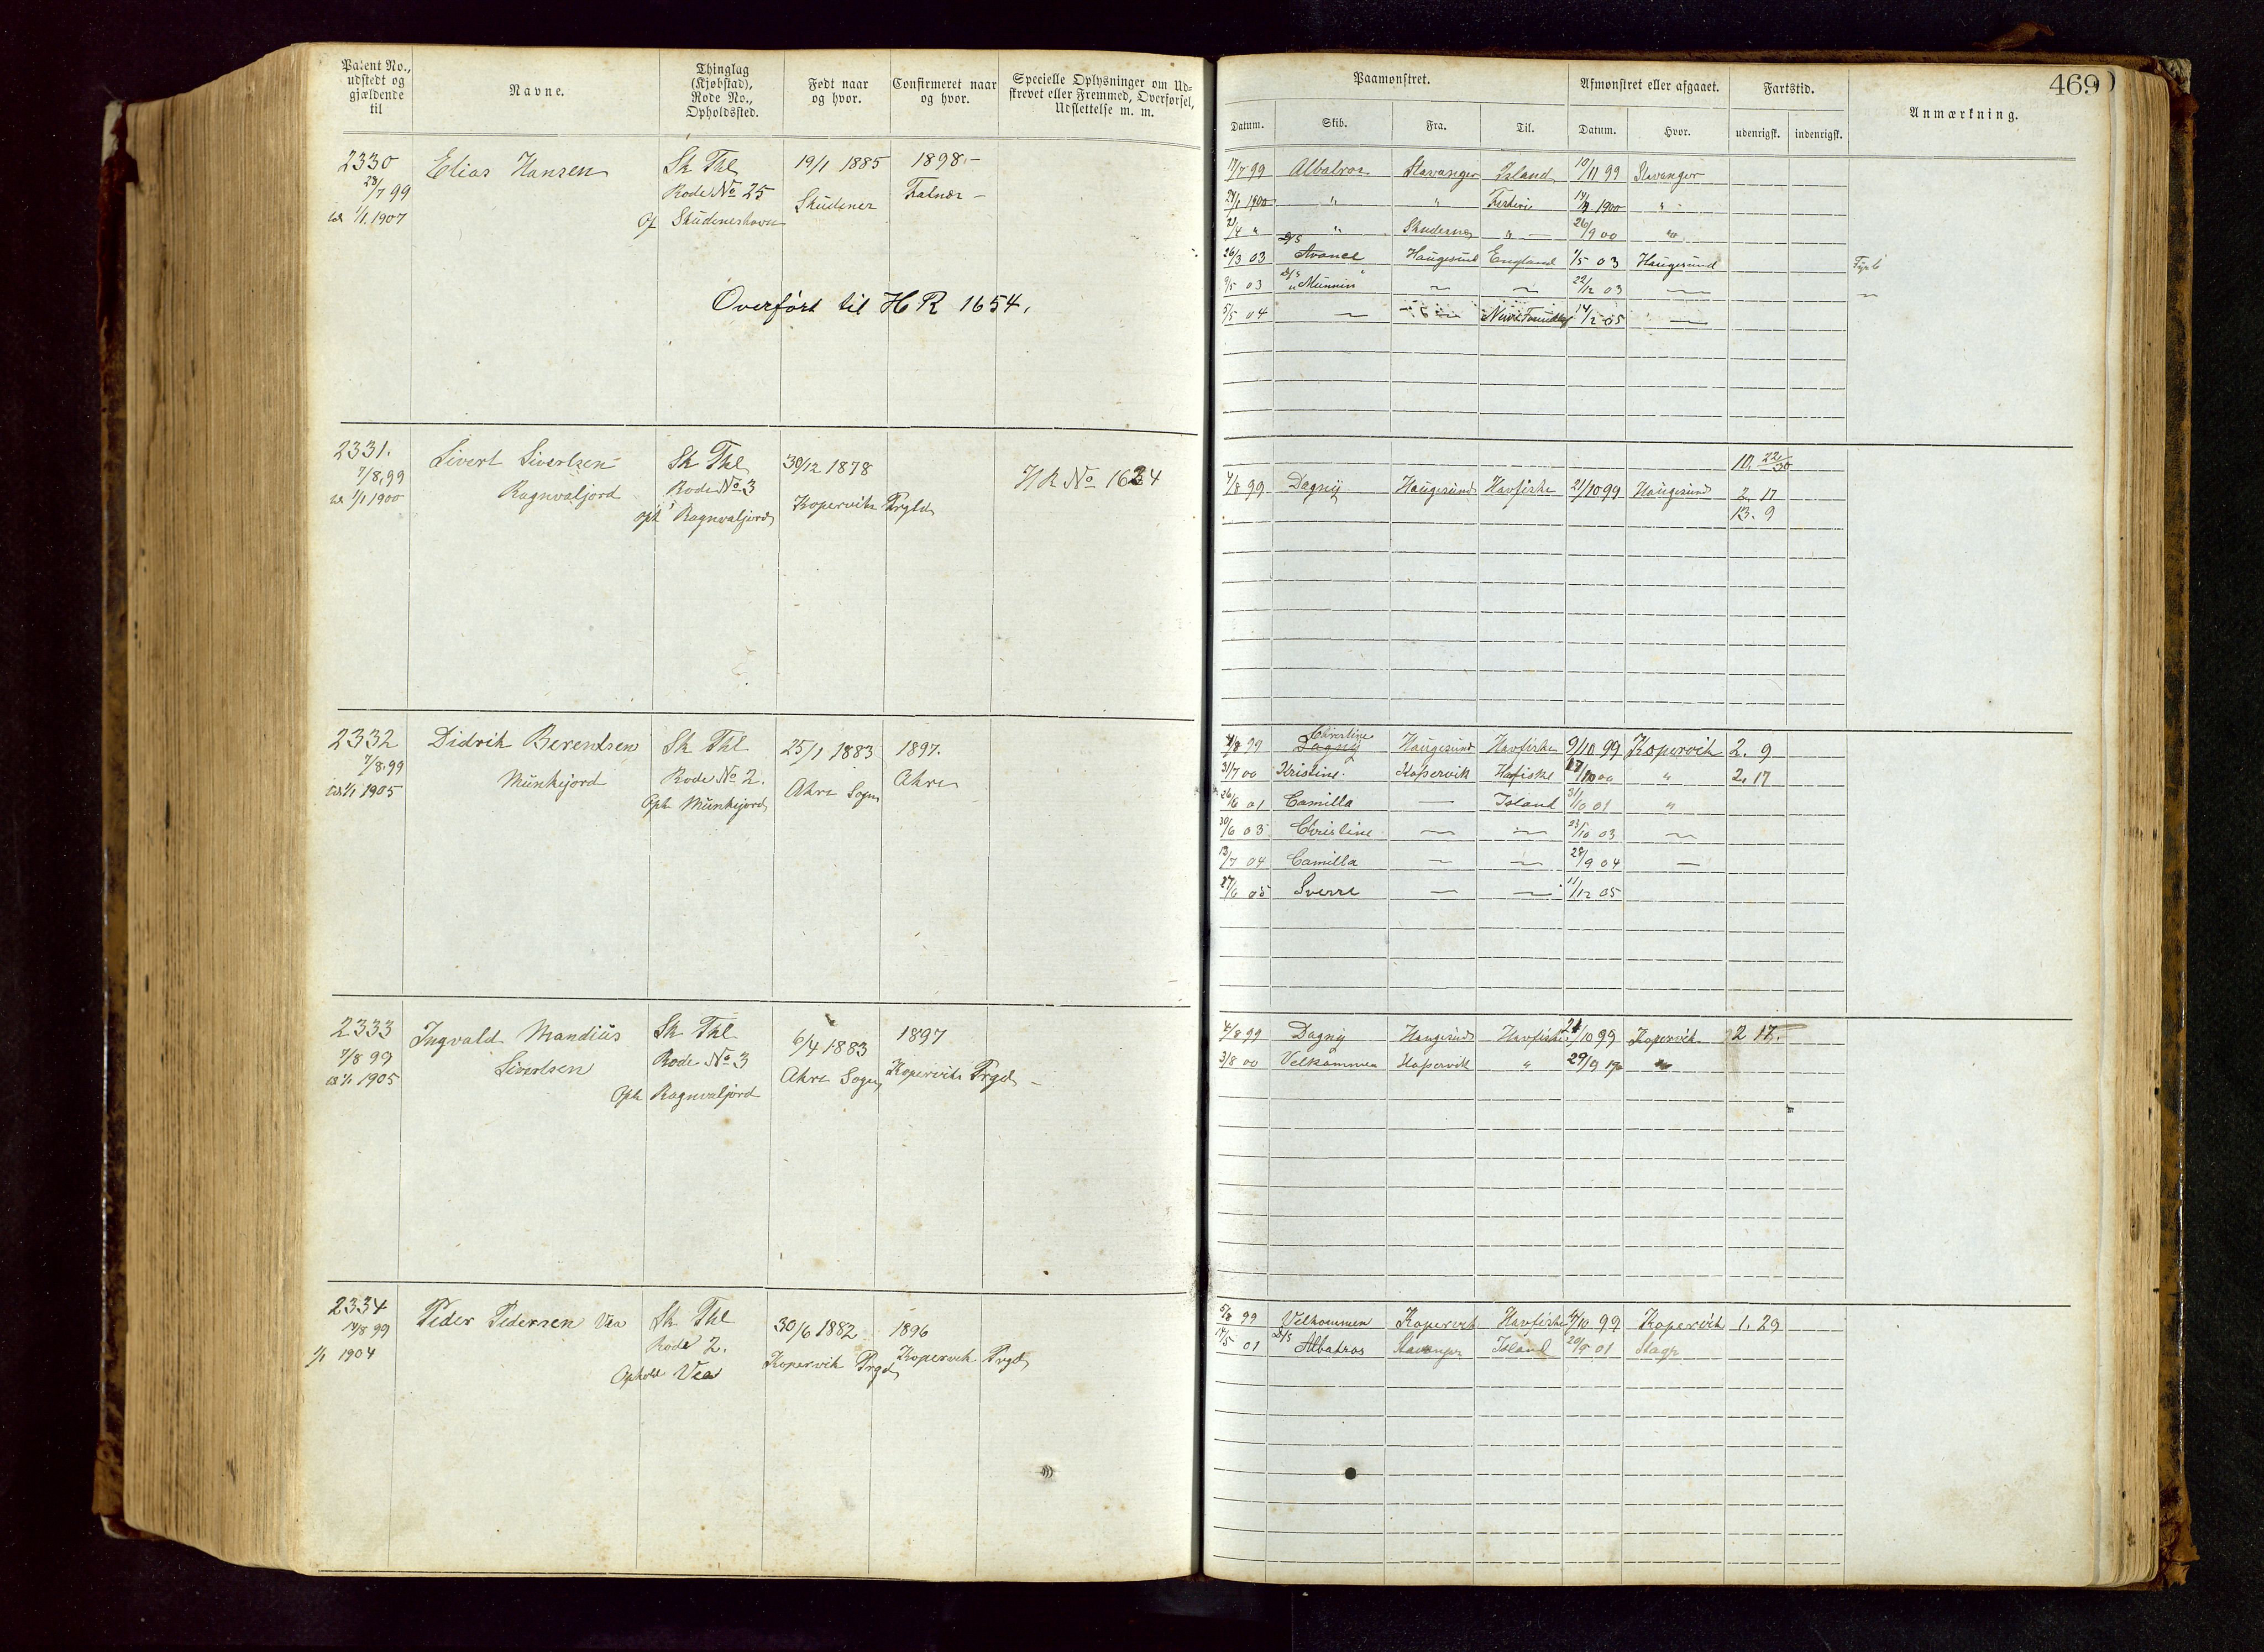 Patent No.,
udstedt og
gjældende
til
Navne.
Thinglag
(Kjøbstad),
Rode No.,
Opholdssted.
Født naar
og hvor.
Confirmeret naar
og hvor.
Specielle Oplysninger om Ud-
skrevet eller Fremmed, Overførsel,
Udslettelse m. m.
2330
28/7 99
1/1 1907
Elias Hansen
Sk Thl
Rode No 25
Skudeneshavn
19/1 1885
Skudenes
1898.-
Falnæs -
Overført til H R 1654.
2331.
7/8.99
1/1 1900
Sivert Sivertsen
Ragnvaljord
Sk Thl
Rode No 3
oph Ragnvaljord
30/12 1878
Kopervik Prgld
H R No 1634
2332
7/8.99
1/1 1905
Didrik Berentsen
Munkejord
Sk Thl
Rode No 2.
Oph Munkejord
25/1 1883
Akre Sogn
1897.
Akre
2333
7/8 99
1/1 1905
Ingvald Mandius
Sivertsen
Sk Thl
Rode No 3
Oph Ragnvaljord
6/4 1883
Akre Sogn
1897
Kopervik Prgd -
2334
14/8 99
1/1 1904
Peder Pedersen Vea
Sk Thl
Rode 2.
Ophold Vea
30/6 1882
Kopervik Prgd
1896
Kopervik Prgd
469
Paamønstret.
Afmønstret eller afgaaet.
Fartstid.
Anmærkning.
Datum.
Skib.
Fra.
Til.
Datum.
Hvor.
udenrigsk.
indenrigsk.
17/7 99 Albatros Stavanger Island 10/11 99 Stavanger
" " 1900 "
2/4 " " Skudenes " - 26/9 00 "
26/3 03 D/S Avance Haugesund England 1/5 03 Haugesund
9/5 03 D/S "Munnin" 22/12 03
5/5 04 14/2 05
10. 22/30
4/8 99 Dagny Haugesund Havfiske 21/10 99 Haugesund 2. 17
13. 9
4/8 99 Christine Dagny Haugesund Havfiske 9/10 99 Kopervik 2. 9
31/7 00 Kristine. Kopervik Hafiske 17/10 00 " 2. 17
26/6 01 Camilla — Island 31/10 01 "
30/6 03 Christine — — 03/10 03 —
13/7 04 Camilla — — 28/9 04 —
27/6 05 Sverre — — 11/12 05
4/8 99 Dagny Haugesund Havfiske 21/10 99 Kopervik 2 17.
3/8 00 Velkommen Kopervik " 29/9 "
5/8 99 Velkommen Kopervik Havfiske 4/10 99 Kopervik 1. 29
14/5 01 D/S Albatros Stavanger Island 20/9 01 Stagr